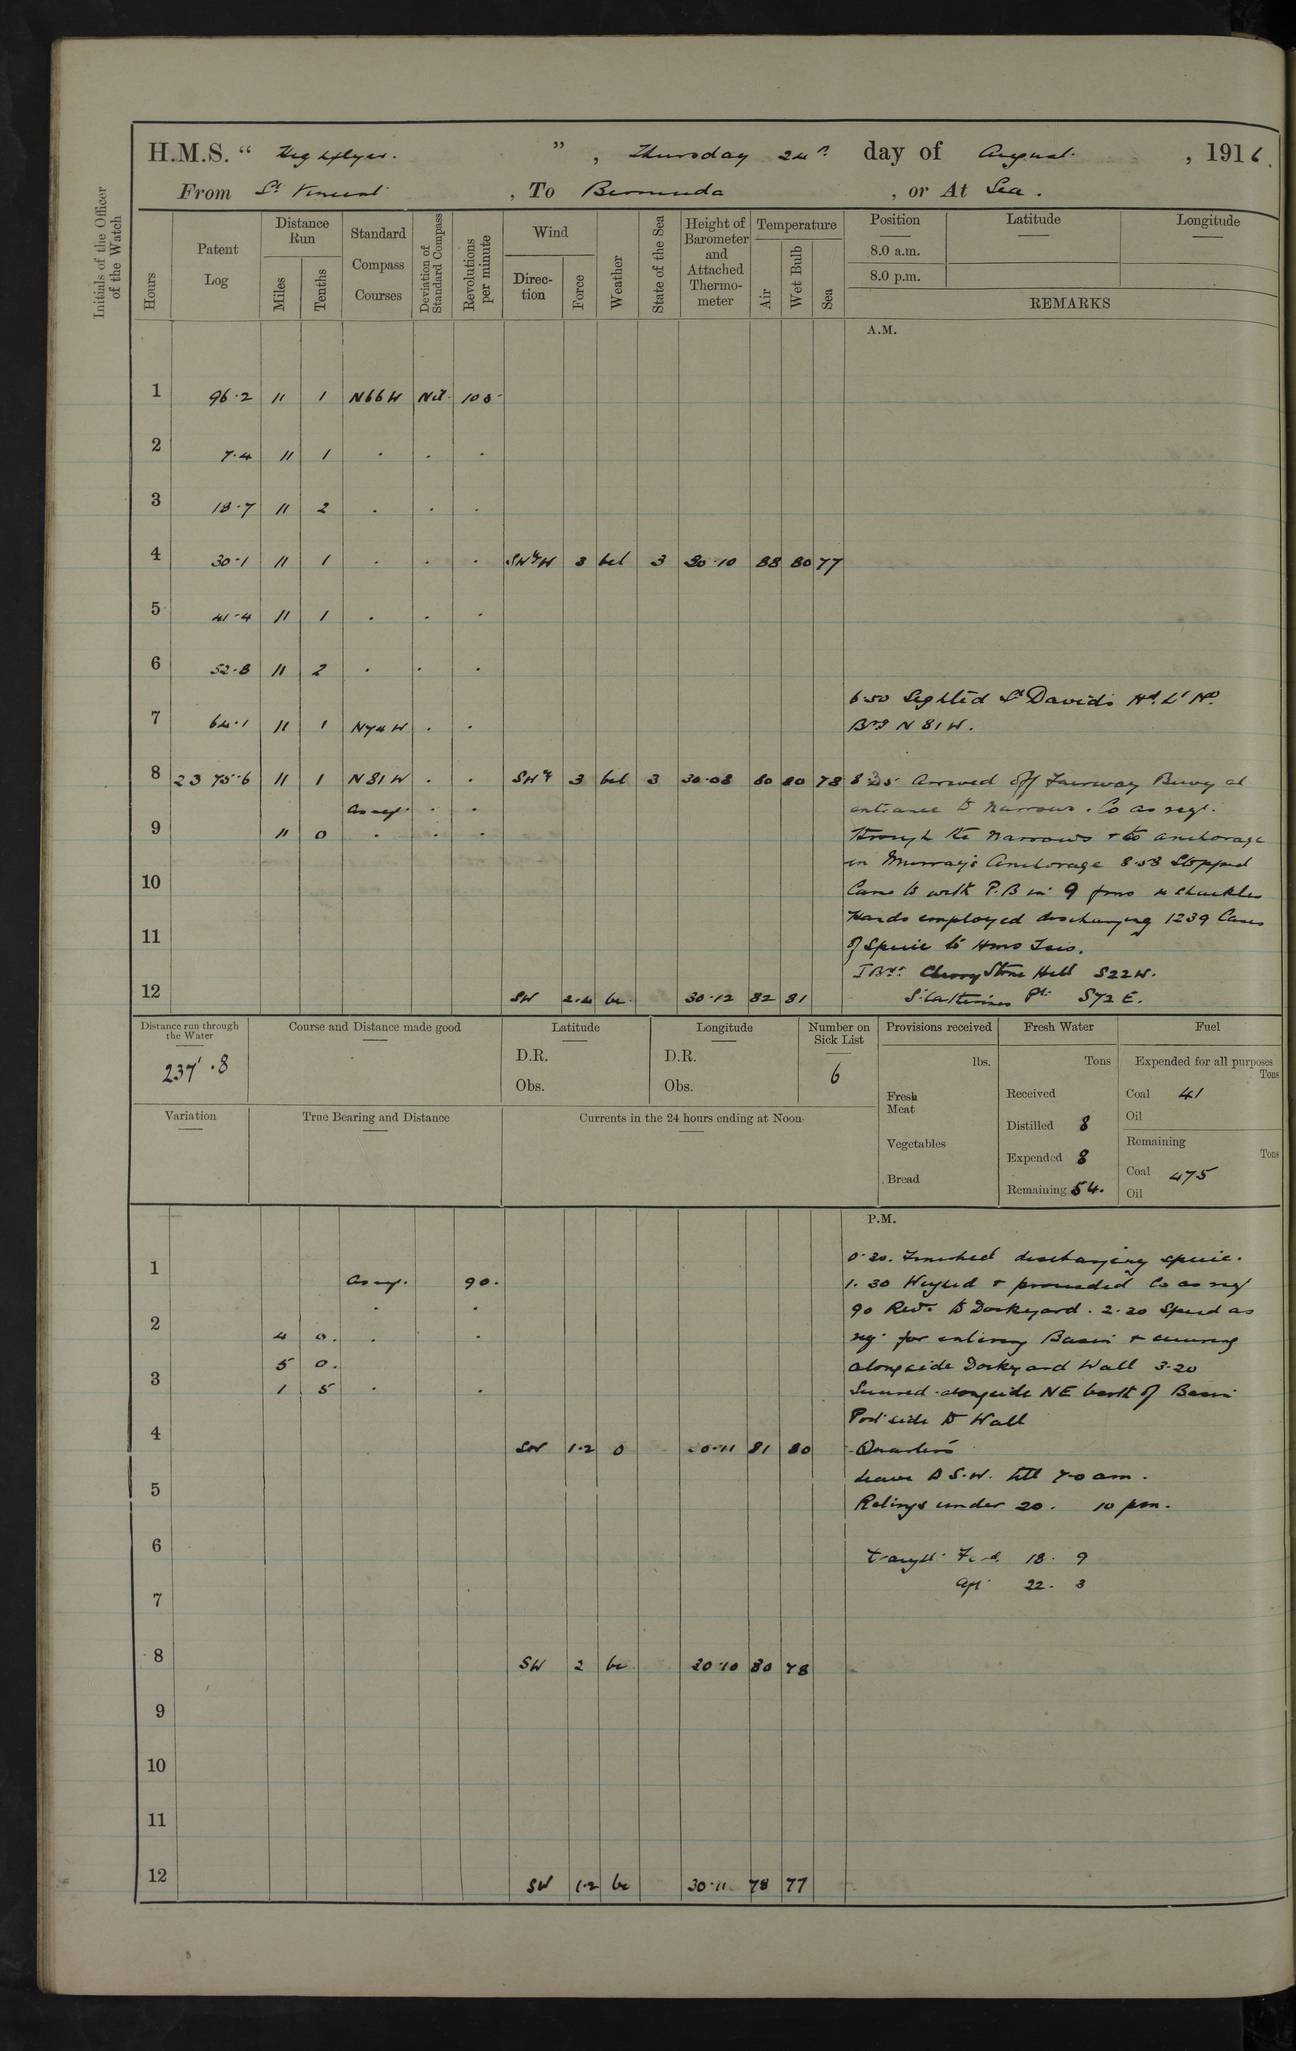 H.M.S. “ Highflyer. ” , Thursday 24th day of August , 1916.
From St Vincent , To Bermuda , or At Sea .
Initials of the Officer of the Watch
Hours
Patent Log
Distance Run
Miles
Tenths
Standard Compass Courses
Deviation of Standard Compass
Revolutions per minute
Wind
Direc-tion
Force
Weather
State of the Sea
Height of Barometer and Attached Thermo-meter
Temperature
Air
Wet Bulb
Sea
Position Latitude Longitude
8.0 a.m.
8.0 p.m.
REMARKS
A.M.
1 96.2 11 1 N66W Nil
2 7.4 11 1 . . .
3 18.7 11 2 . . .
4 30.1 11 1 . . . SW'ly W 3 bcl 3 30.10 88 80 77
5 41.4 11 1 . . .
6 52.8 11 2 . . .
6.50 Sighted St Davids Hd. Lt Ho.
7 64.1 11 1 N74W . .
Brg N 81 W.
8 23 75.6 11 1 N81W . . SW'ly 3 bcl 3 30.08 80 80 78
Arrived off Fairway Buoy at
As req. . .
entrance to Narrows. Co as req.
9 11 0 . . .
through the Narrows + to anchorage
in Murray's Anchorage 8.58 Stopped
10
Came to with P.B in 9 fms 4 shackles
Hands employed discharging 1239 Cases
11
of Specie to HMS Isis.
T Brgs. Cherry Stone Hill S22W.
12 SW 2.4 bc. 30.12 82 81
St Catherines Pt. S72 E.
Distance run through the Water
237'.8
Course and Distance made good
Latitude
D.R.
Obs.
Longitude
D.R.
Obs.
Number on Sick List
6
Provisions received
lbs.
Fresh Meat
Vegetables
Bread
Fresh Water
Tons
Received
Distilled 8
Expended 8
Remaining 54.
Fuel
Expended for all purposes
Tons
Coal 41
Oil
Remaining
Tons
Coal 475
Oil
Variation
True Bearing and Distance
Currents in the 24 hours ending at Noon
P.M.
0.20. Finished discharging specie.
1 As req. 90.
1.30 Weighed + proceeded Co as req
90 Revs. to Dockyard. 2.20 Speed as
2 4 0. . .
req. for entering Basin + securing
5 0.
alongside Dockyard Wall 3.20
3 1 5 . .
Secured alongside NE berth of Basin
Port side to Wall
4 SW 1.2 0 0.11 81 80
Quarters
Leave to S.W. till 7.0 am.
5
Ratings under 20. 10 pm.
6
Draught Ford. 18. 9
Aft. 22. 3
7
8 SW 2 bc 30.10 80 78
9
10
11
12 SW 1.2 bc 30.11 78 77